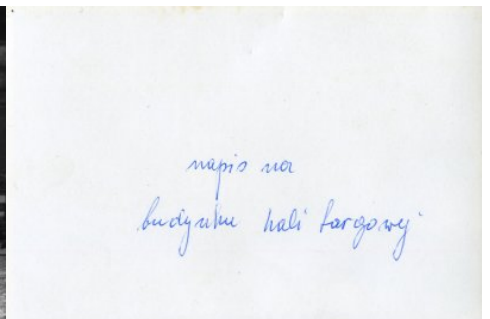 napis na
budynku hali targowej